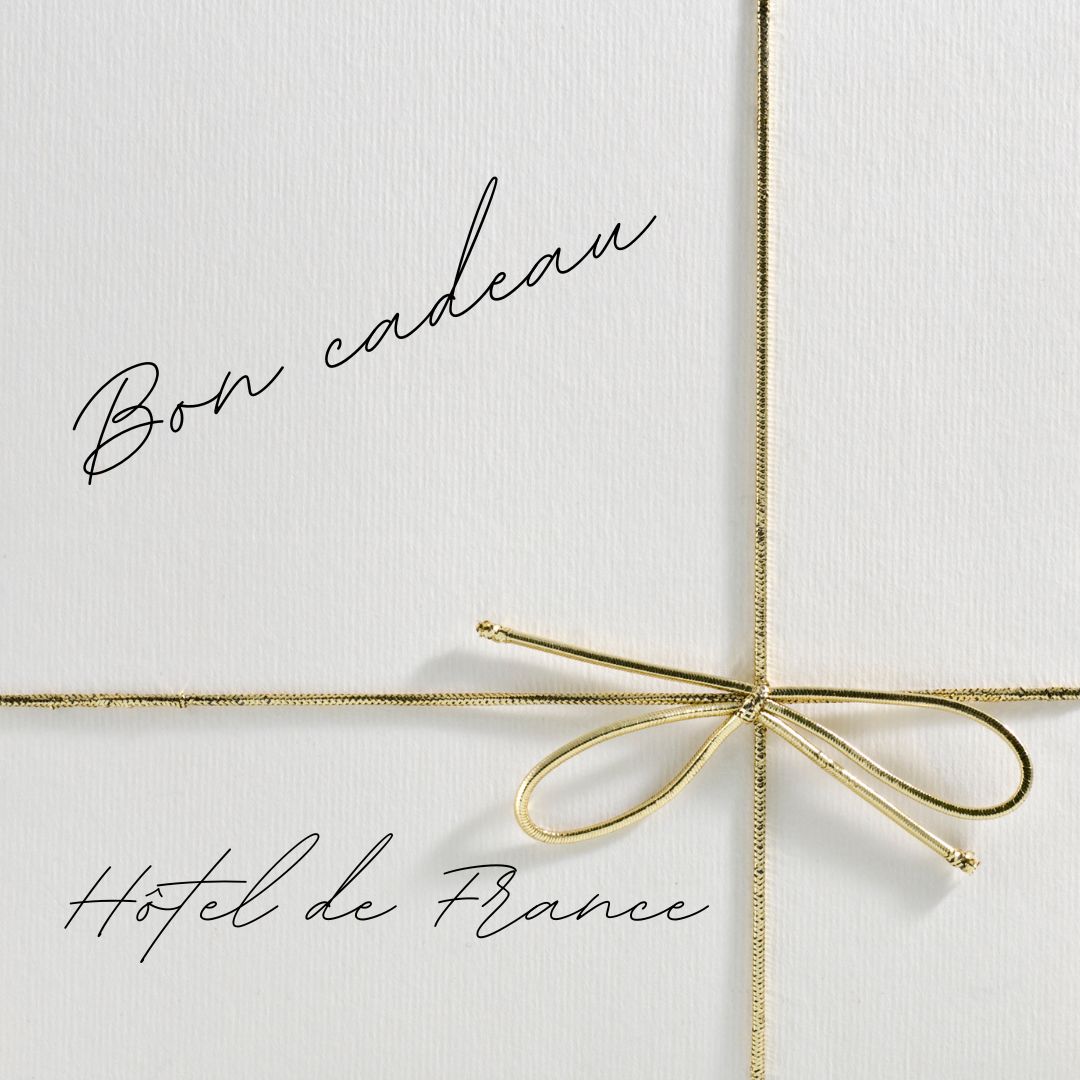 Bon cadeau
Hôtel de France